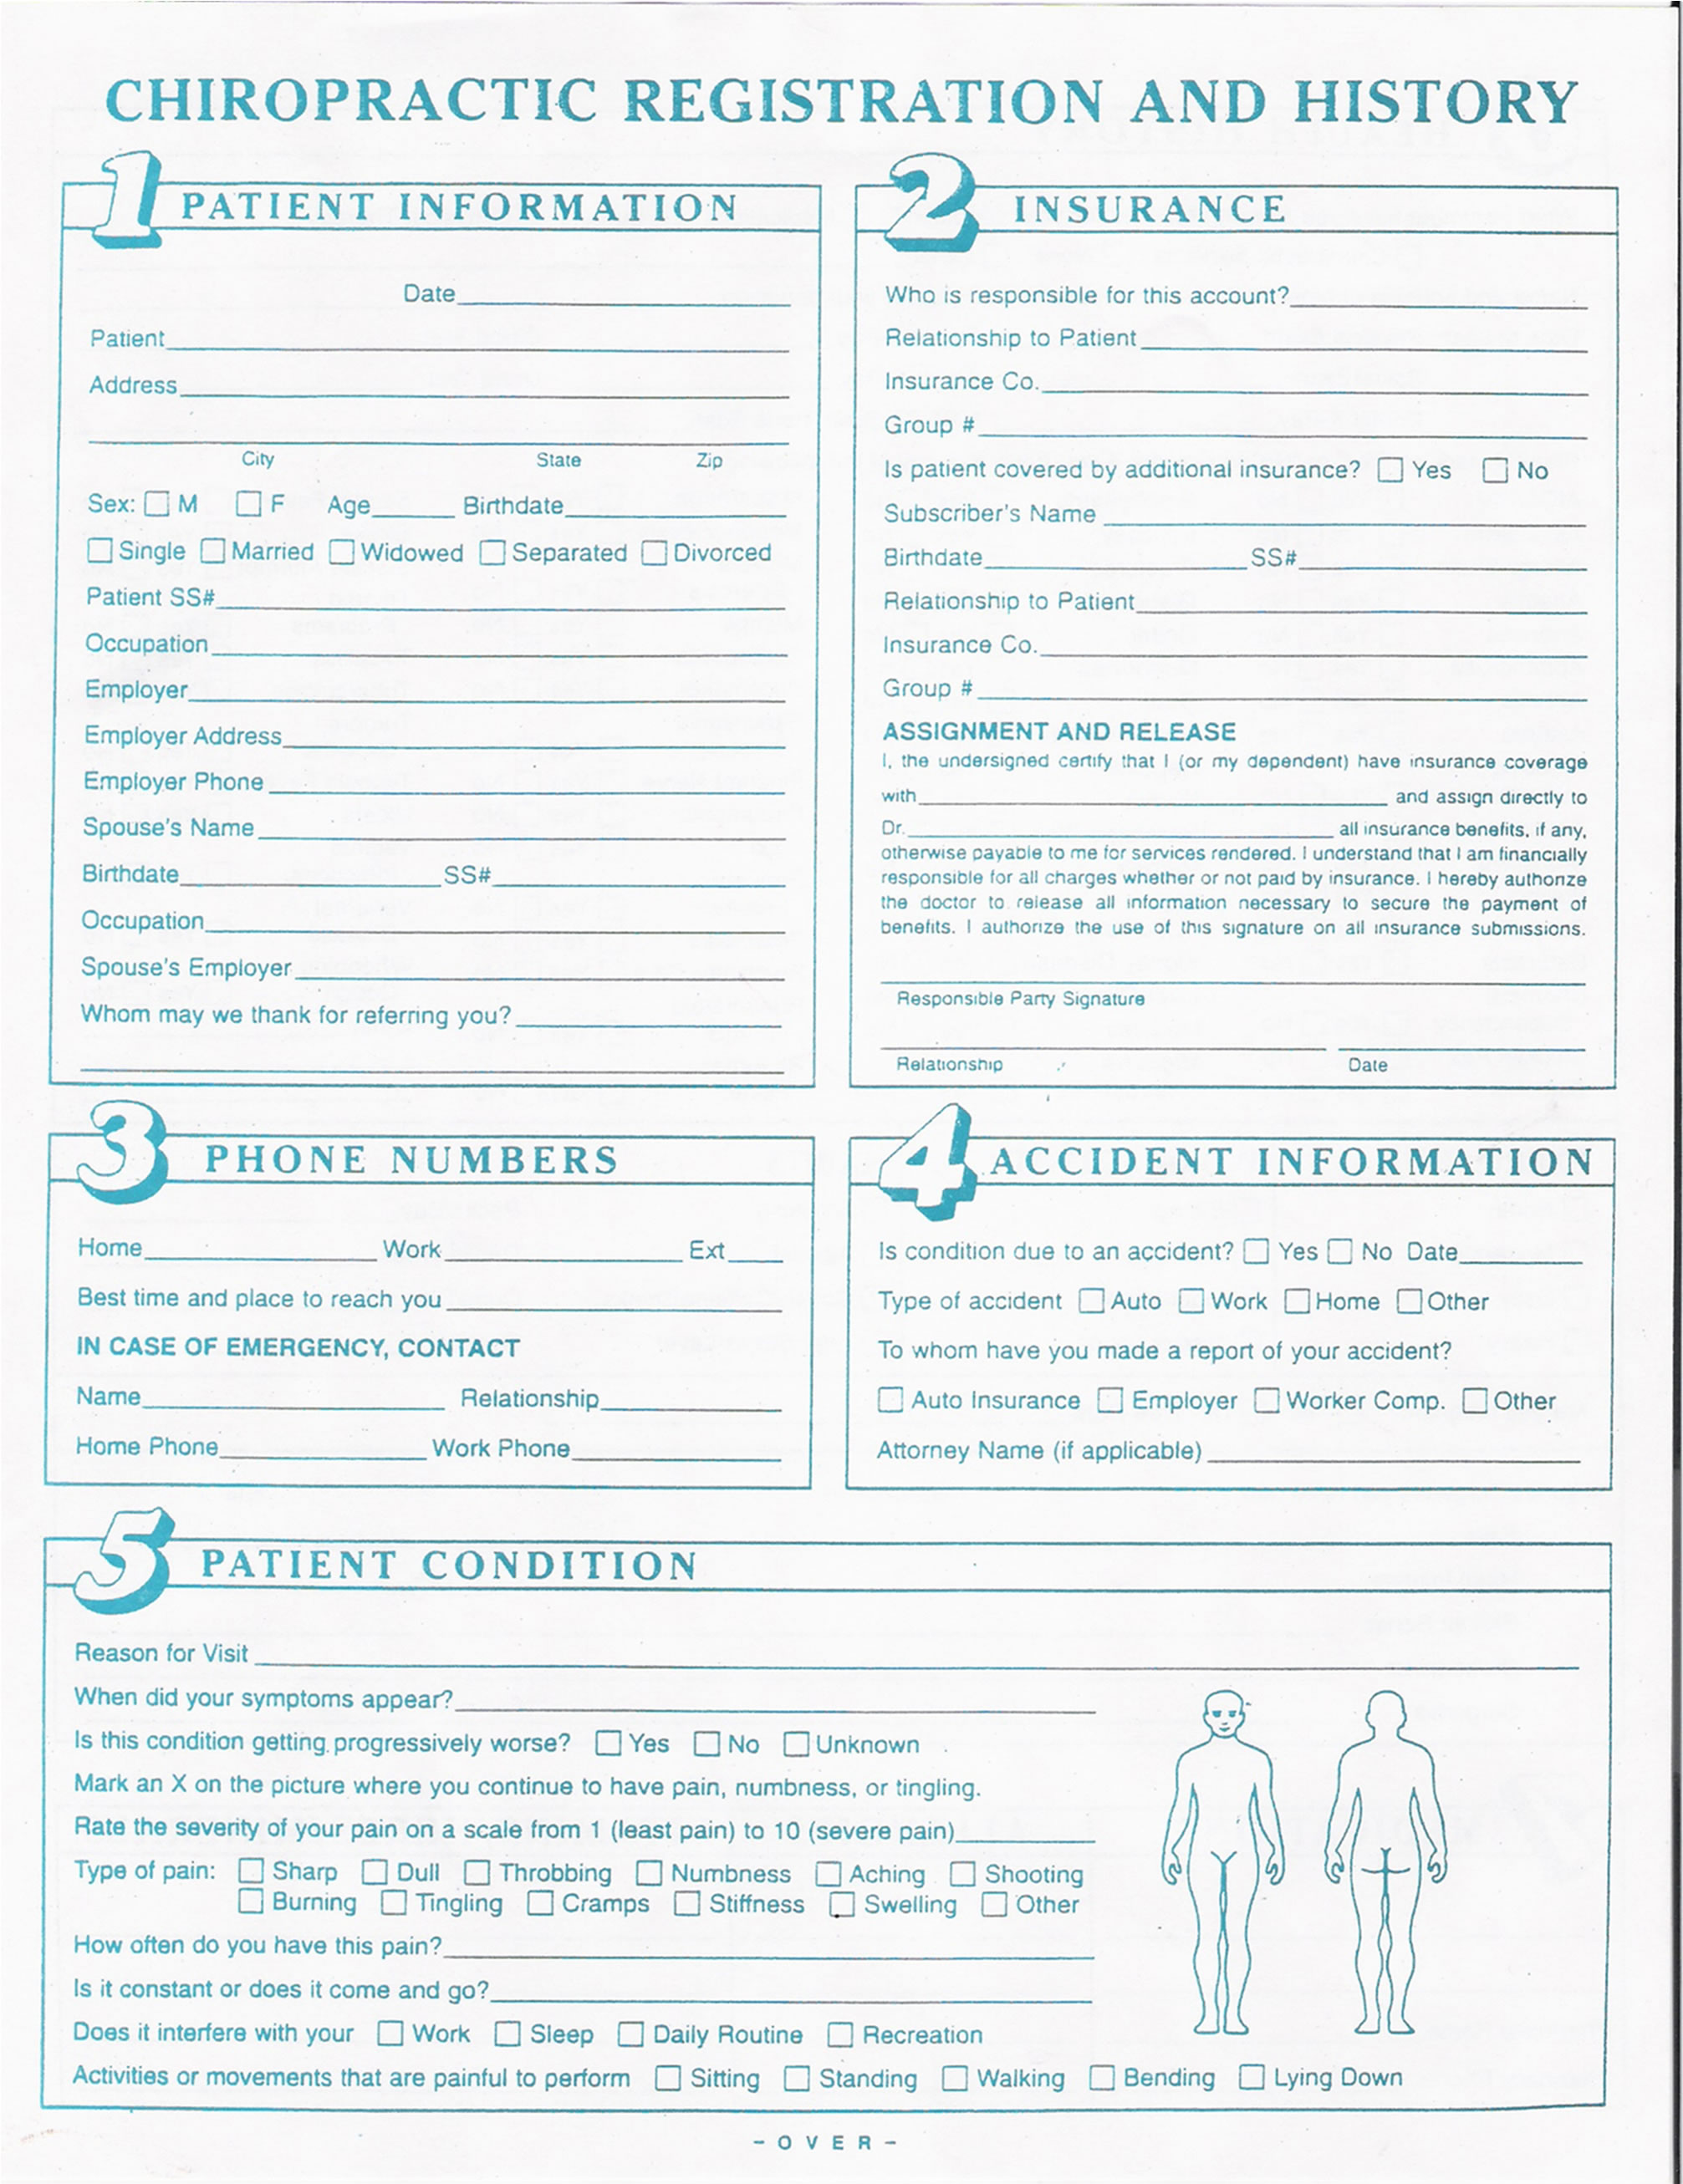 CHIROPRACTIC REGISTRATION AND HISTORY
1 PATIENT INFORMATION
Date
Patient
Address
City State Zip
Sex: M F Age Birthdate
Single Married Widowed Separated Divorced
Patient SS#
Occupation
Employer
Employer Address
Employer Phone
Spouse's Name
Birthdate SS#
Occupation
Spouse's Employer
Whom may we thank for referring you?
2 INSURANCE
Who is responsible for this account?
Relationship to Patient
Insurance Co.
Group #
Is patient covered by additional insurance? Yes No
Subscriber's Name
Birthdate SS#
Relationship to Patient
Insurance Co.
Group #
ASSIGNMENT AND RELEASE
I, the undersigned certify that I (or my dependent) have insurance coverage
with and assign directly to
Dr. all insurance benefits, if any,
otherwise payable to me for services rendered. I understand that I am financially
responsible for all charges whether or not paid by insurance. I hereby authorize
the doctor to release all information necessary to secure the payment of
benefits. I authorize the use of this signature on all insurance submissions.
Responsible Party Signature
Relationship Date
3 PHONE NUMBERS
Home Work Ext
Best time and place to reach you
IN CASE OF EMERGENCY, CONTACT
Name Relationship
Home Phone Work Phone
4 ACCIDENT INFORMATION
Is condition due to an accident? Yes No Date
Type of accident Auto Work Home Other
To whom have you made a report of your accident?
Auto Insurance Employer Worker Comp. Other
Attorney Name (if applicable)
5 PATIENT CONDITION
Reason for Visit
When did your symptoms appear?
Is this condition getting progressively worse? Yes No Unknown
Mark an X on the picture where you continue to have pain, numbness, or tingling.
Rate the severity of your pain on a scale from 1 (least pain) to 10 (severe pain)
Type of pain: Sharp Dull Throbbing Numbness Aching Shooting
Burning Tingling Cramps Stiffness Swelling Other
How often do you have this pain?
Is it constant or does it come and go?
Does it interfere with your Work Sleep Daily Routine Recreation
Activities or movements that are painful to perform Sitting Standing Walking Bending Lying Down
- O V E R -